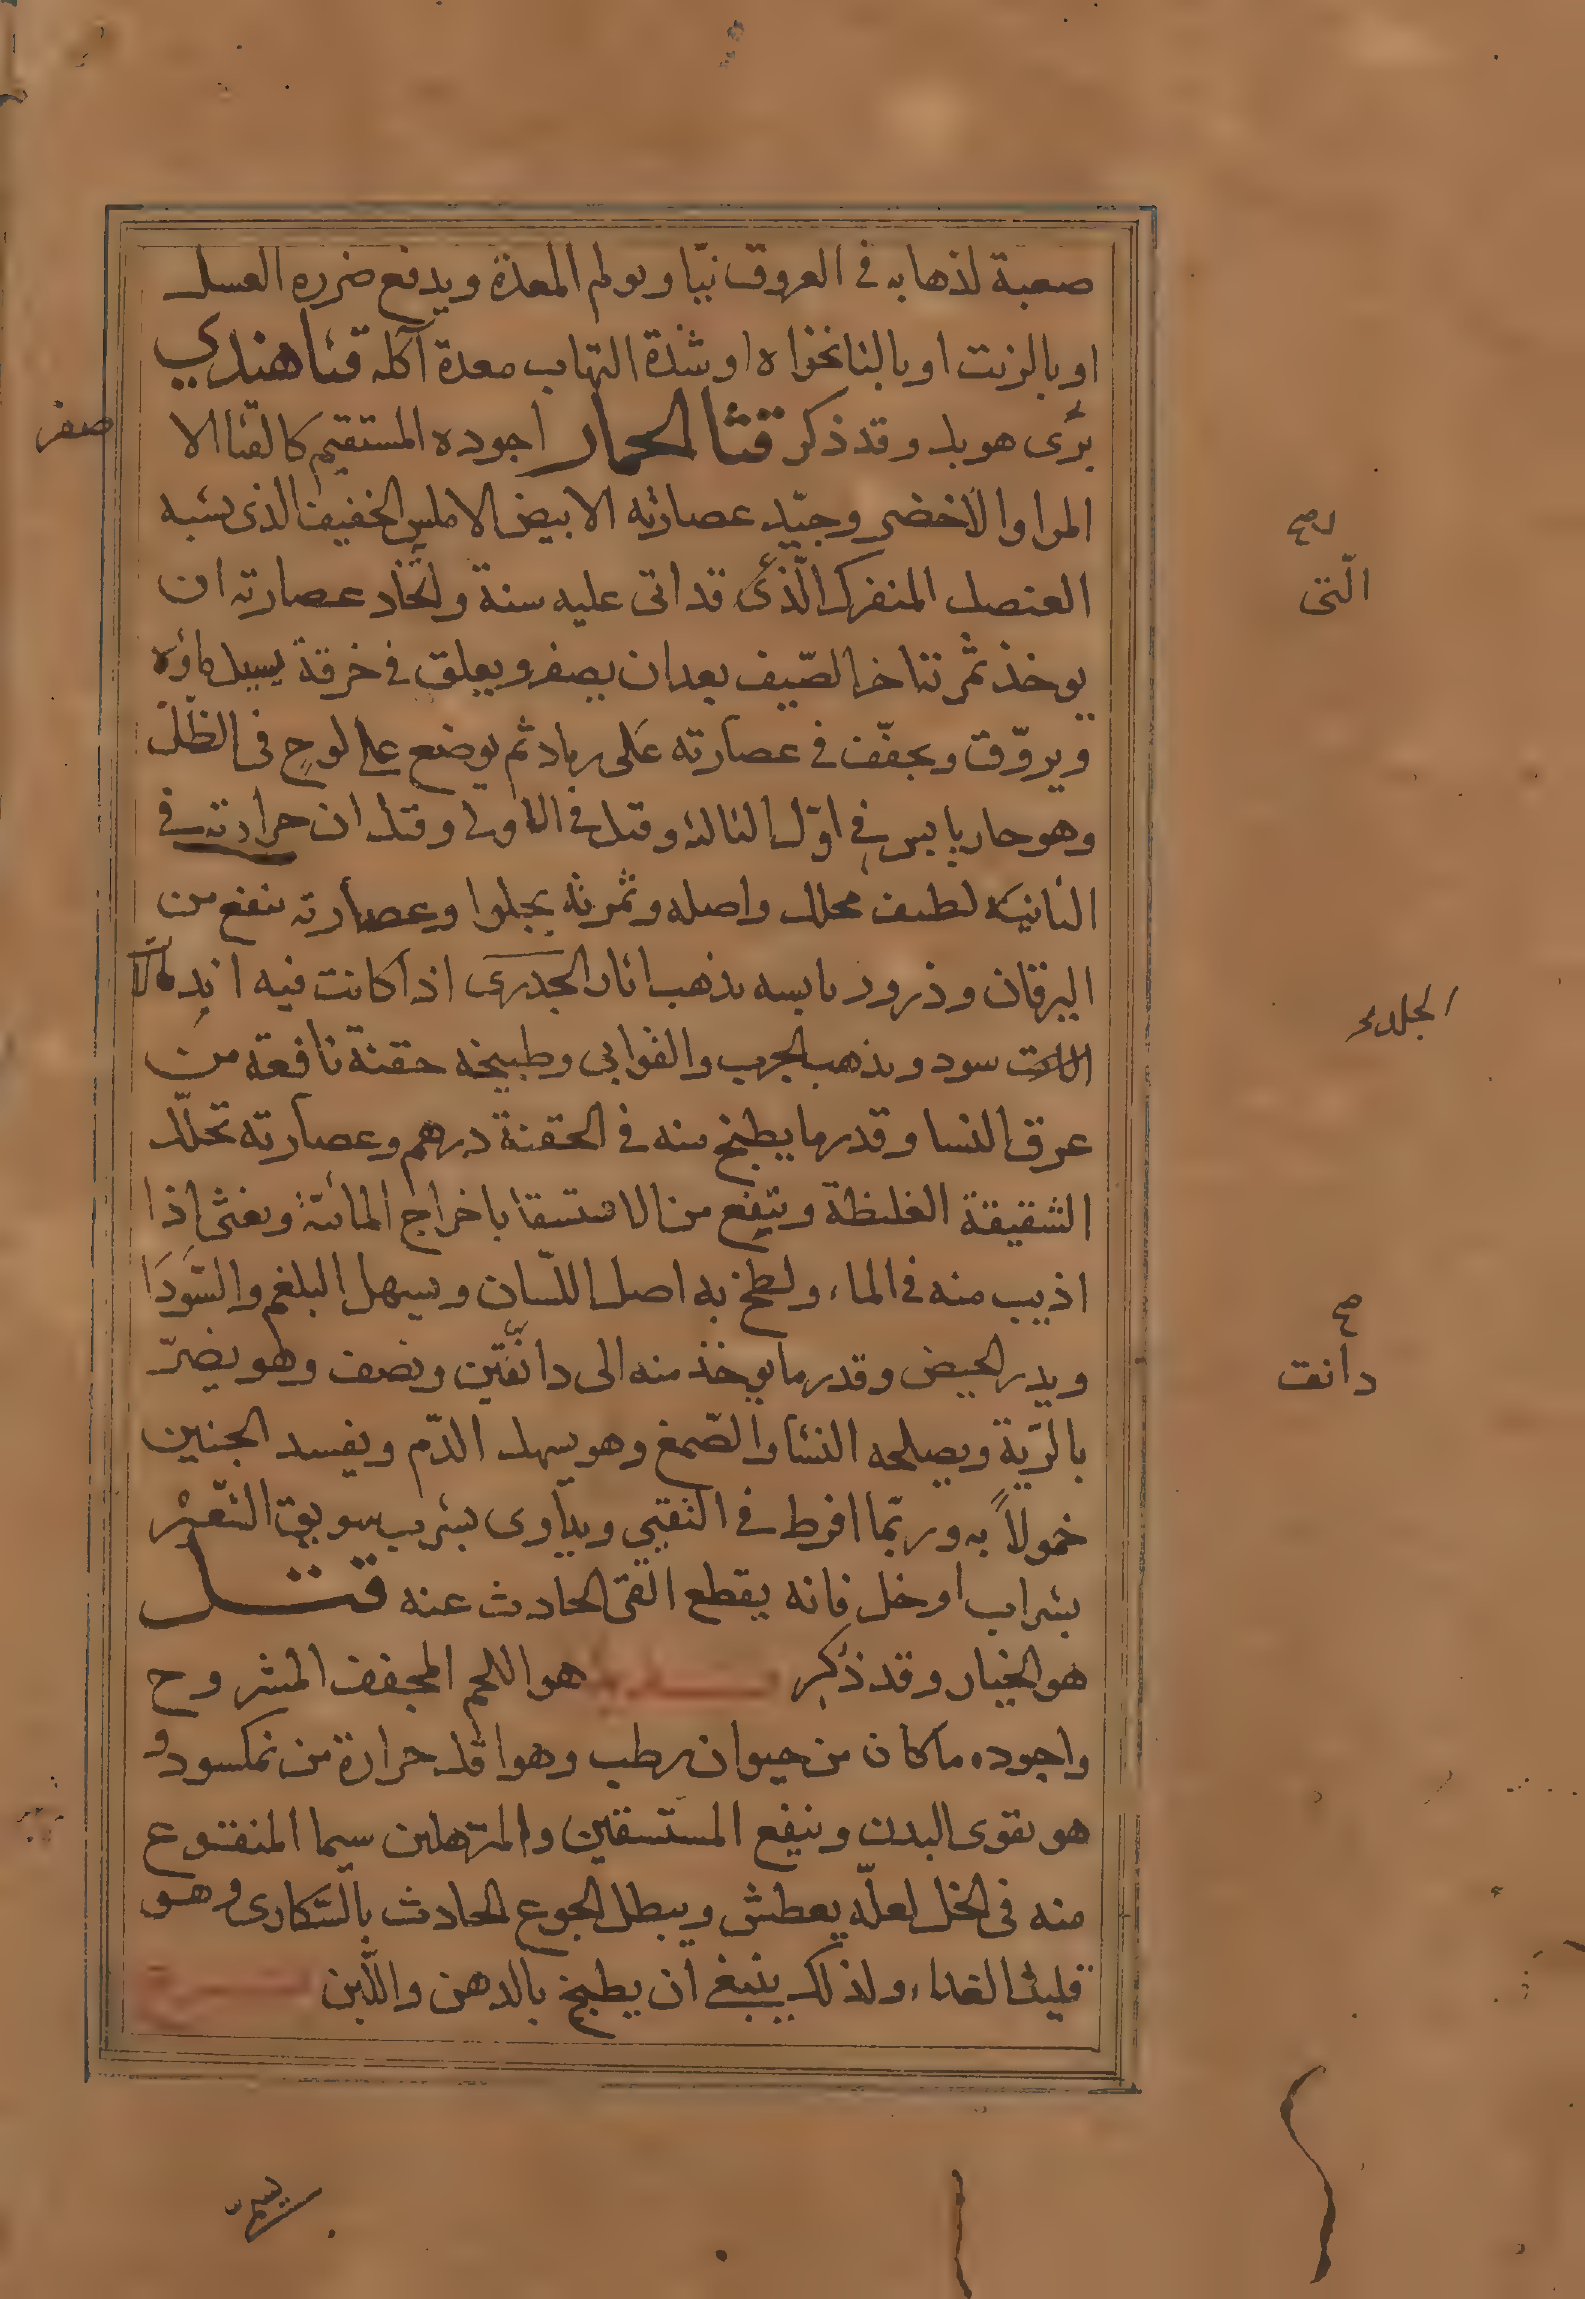 صعبة لذهابه في العروق نيّا ويولم المعدة ويدفع ضرره العسل
او بالزيت او بالنانخواه او شدة التهاب معدة آكله قثا هندي
برّى هو بل وقد ذكر قثا الحمار اجوده المستقيم كالقثا الا
صفر
المر او الاخضر وجيّد عصارته الابيض الاملس الخفيف الذى يشبه
العنصل المنفرك الّذى قد اتى عليه سنة واتّخاد عصارته ان
التى
يوخذ ثمرتنا خر الصّيف بعد ان يصفر ويعلق في خرقة يسيل ماؤه
ويروّق ويجفّف في عصارته على رماد ثم يوضع على لوح في الظّل
وهو حار يابس في اوّل الثالثه وقيل في الاولى وقيل ان حرارته في
الثانيه لطيف محلل واصله وثمرته يجلوا وعصارته ينفع من
اليرقان وذرور يابسه يذهب اثار الجدرى اذا كانت فيه اندمالات
الجلد
سود ويذهب الجرب والقوابى وطبيخه حقنة نافعة من
عرق النسا وقدر ما يطبخ منه في الحقنة درهم وعصارته تحلّل
الشقيقة الغليظة وينفع من الاستسقا باخراج المائيّة ويغثى اذا
اذيب منه في الماء ولطخ به اصل اللّسان ويسهل البلغم والسّودا
ويدر الحيض وقدر ما يوخذ منه الى دانقين ونصف وهو يضرّ
دانق
بالرّية ويصلحه النشا والصّمغ وهو يسهل الدّم ويفسد الجنين
حمولاً به وربّما افرط في التقيى ويداوى بشرب سويق الشّعير
بشراب او خل فانه يقطع القى الحادث عنه قثد
هو الخيار وقد ذكر هو اللحم المجفف المشروح
واجوده ما كان من حيوان رطب وهو اقل حرارة من نمكسود و
هو يقوى البدن وينفع المستسقين والمترهلين سيما المنقوع
منه في الخل لعلّه يعطش ويبطل الجوع الحادث بالسّكارى وهو
قليل الغذاء ولذلك ينبغى ان يطبخ بالدهن واللّبن